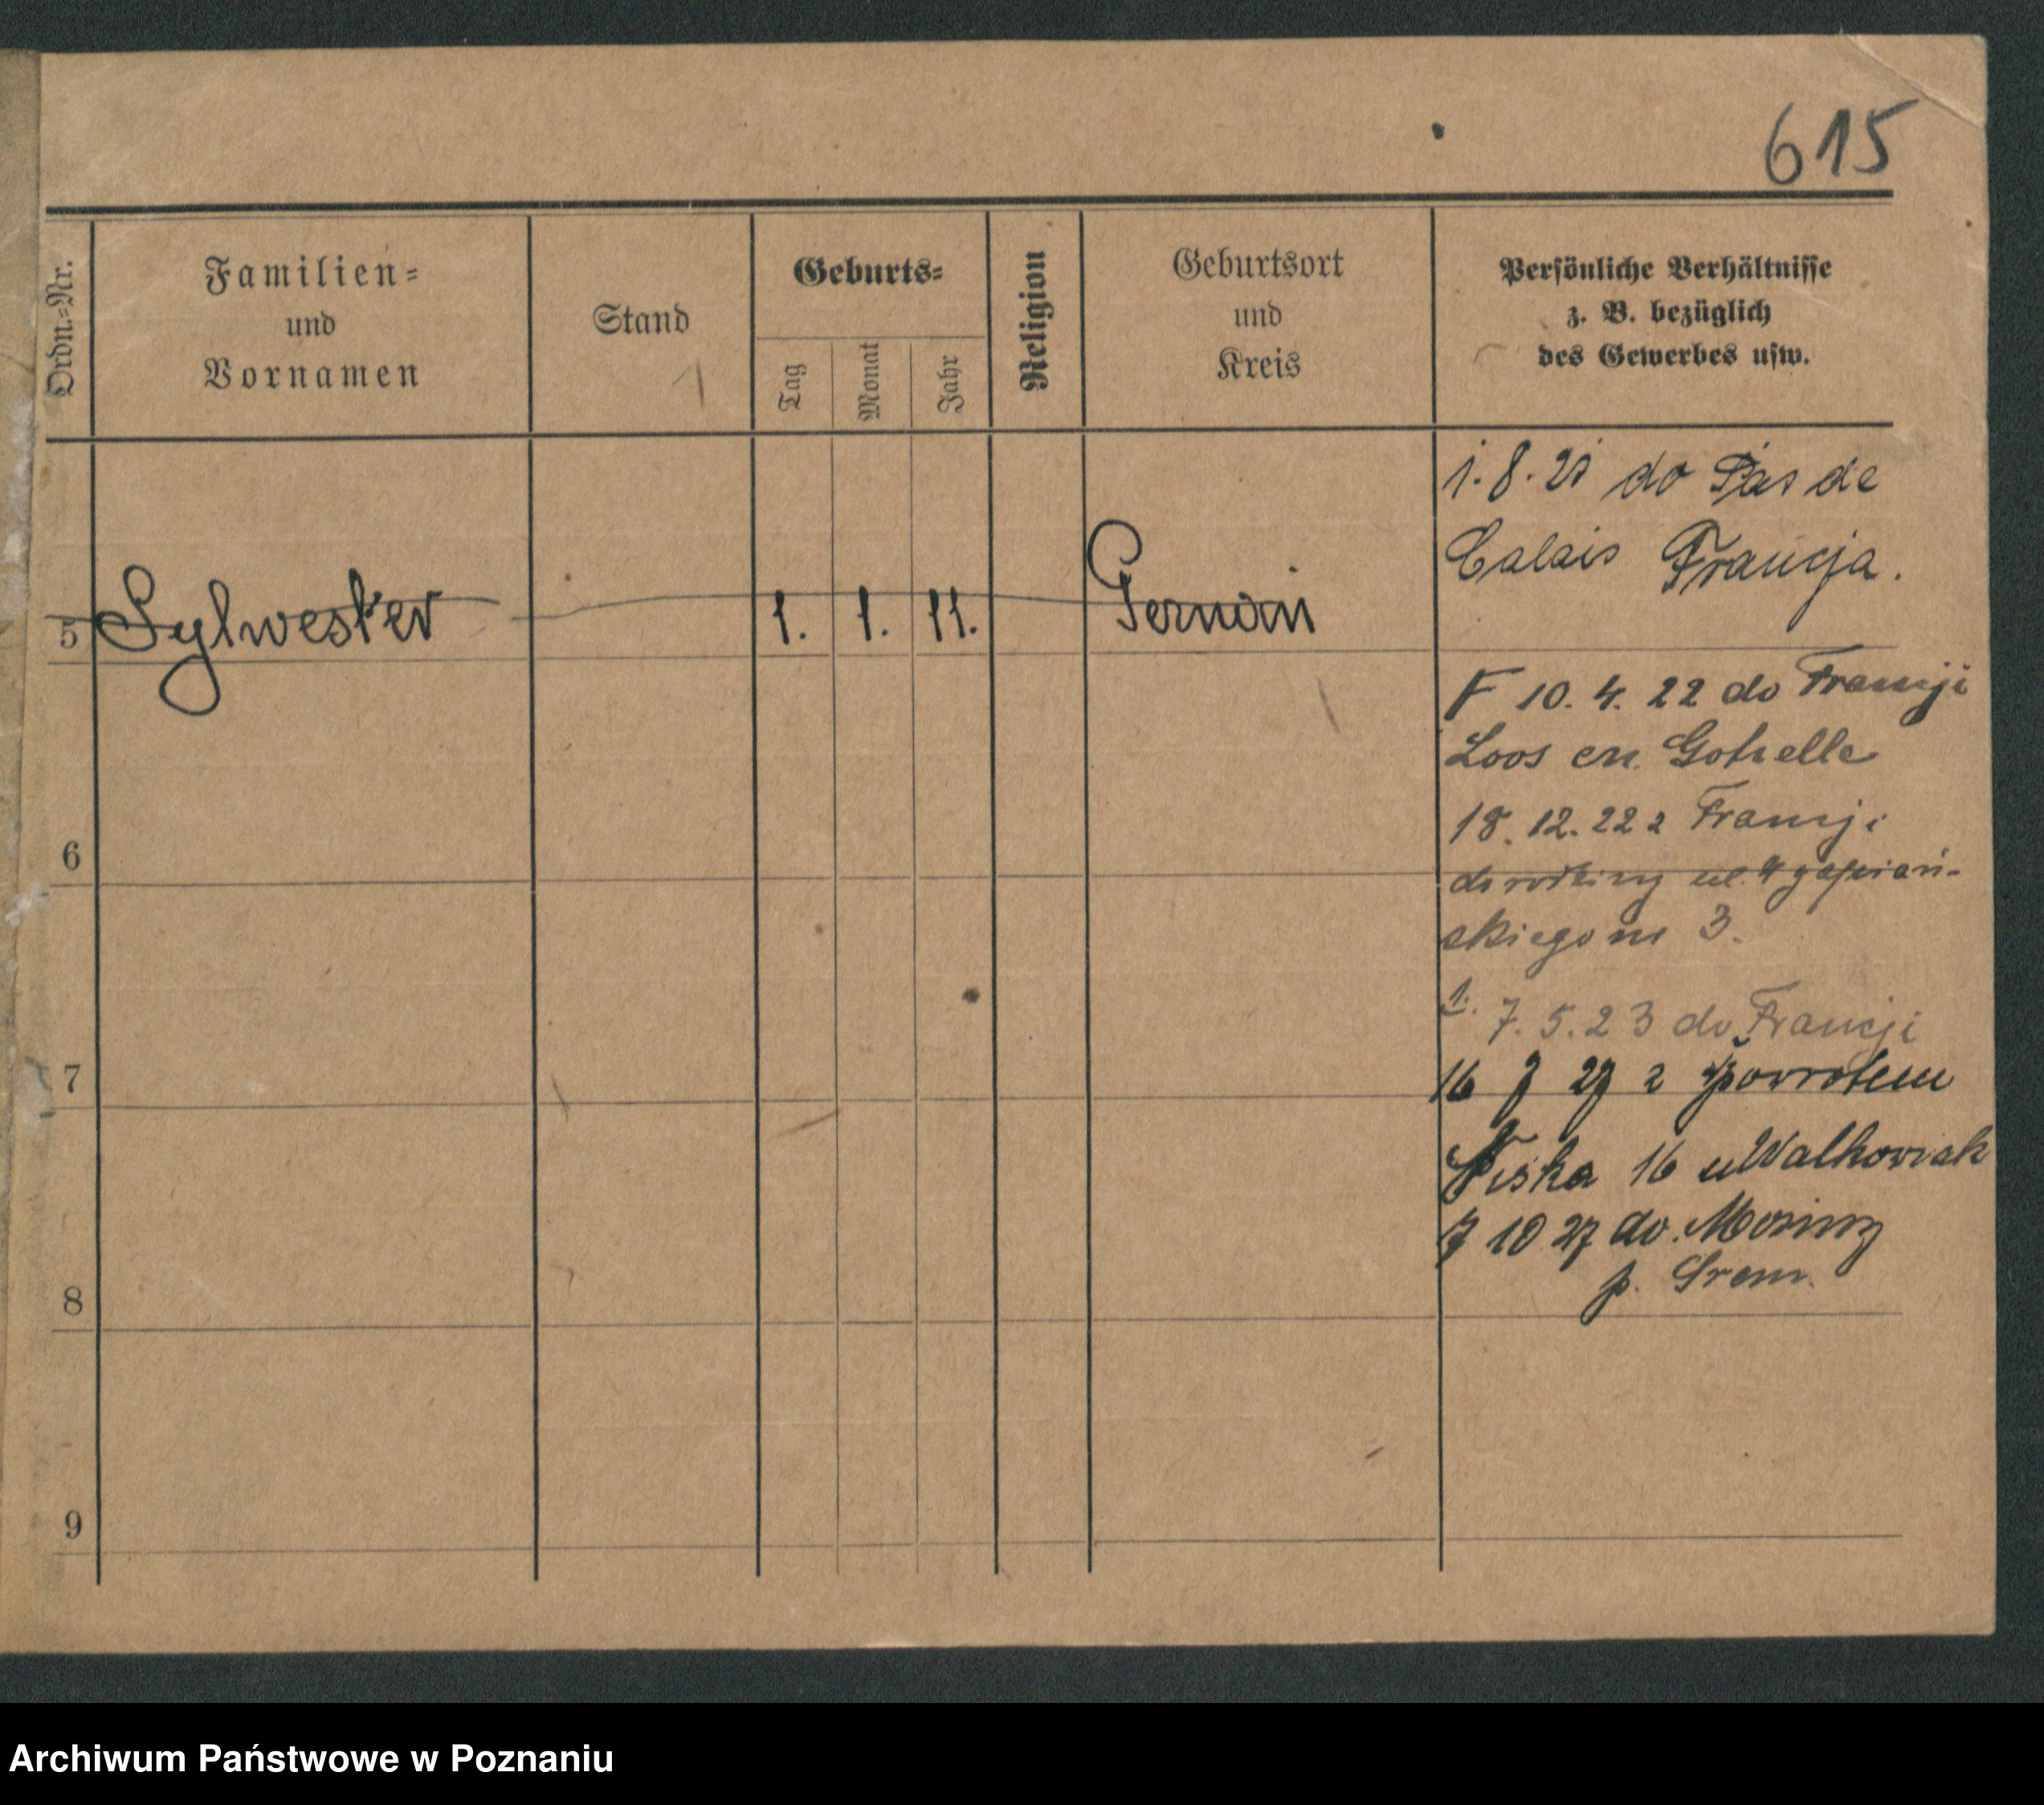 615
Ordn.=Nr.
Familien=
und
Vornamen
Stand
Geburts=
Tag
Monat
Jahr
Religion
Geburtsort
und
Kreis
Persönliche Verhältnisse
z. B. bezüglich
des Gewerbes usw.
1. 8. 21 do Pas de
Calais Francja.
5 Sylwester 1. 1. 11. Poznań
F 10. 4. 22 do Francji
Loos en Gohelle
18. 12. 22 z Francji
do rodziny ul. Wyspiań-
skiego m 3.
6
1. 7. 5. 23 do Francji
16 7 27 z powrotem
7
16 u Walkowiak
7 10 27 do Mosiny
p. Srem.
8
9
Archiwum Państwowe w Poznaniu